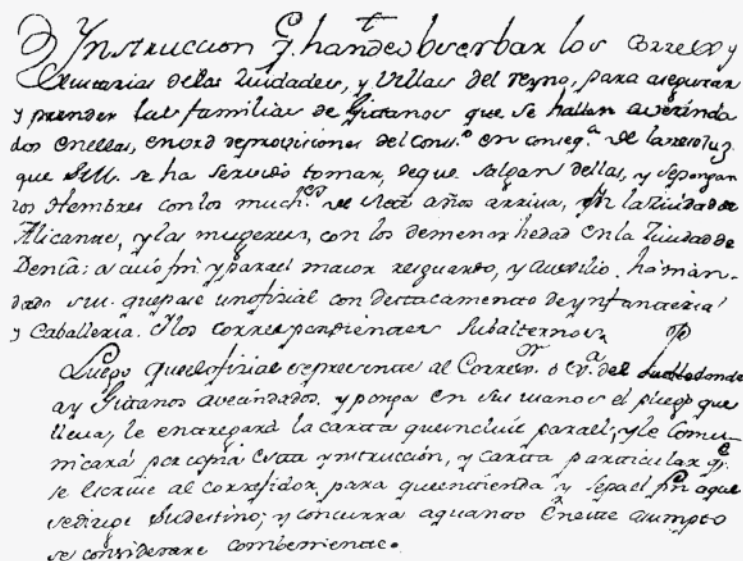 Ynstruccion q. han de observar los Correx.s y
Xusticias de las Ziudades, y Villas del reyno, para asegurar
y prender las familias de Gitanos que se hallan avezinda
dos en ellas, en ord de provisiones del Cons.o en conseq.a de la resoluz.
que S.M. se ha servido tomar, de que salgan dellas, y se pongan
los Hombres con los much.os de siete años arriva, en la Ziudad de
Alicante, y las mugeres, con los de menor hedad en la Ziudad de
Denia: a cuio fin y para el maior resguardo, y auxilio, ha man-
dado S.M. que pase un ofizial con destacamento de ynfanteria
y Caballeria. A los correspondientes Subalternos.
Luego que el ofizial se presente al Correx.or o del Pueblo donde
ay Gitanos avecindados, y ponga en sus manos el pliego que
lleva, le entregará la carta que incluie para el, y le Comu-
nicará por copia esta ynstruccion, y carta particular q.e
se escrive al corregidor para que entienda y sepa el fin a que
se dirige su destino; y concurra a quanto en este asumpto
se considerare combeniente.